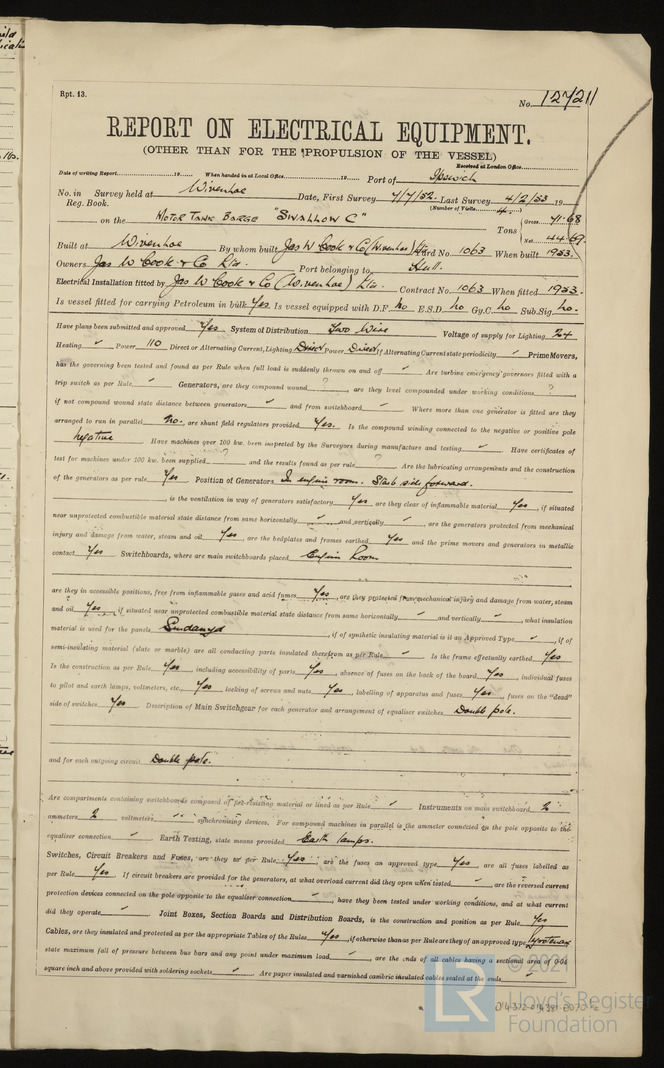 Rpt. 13.
No. 12721
REPORT ON ELECTRICAL EQUIPMENT.
(OTHER THAN FOR THE PROPULSION OF THE VESSEL)
Received at London Office
Date of writing Report 19 When handed in at Local Office 19 Port of Ipswich
No. in Survey held at Wivenhoe Date, First Survey 4/7/52 Last Survey 4/2/53 19
Reg. Book. (Number of Visits 4)
on the MOTOR TANK BARGE "SWALLOW C" Tons Gross 71.68
Net 44.69
Built at Wivenhoe By whom built Jas W Cook & Co (Wivenhoe) Ltd Yard No. 1063 When built 1953.
Owners Jas W Cook & Co Ltd. Port belonging to Hull.
Electrical Installation fitted by Jas W Cook & Co (Wivenhoe) Ltd. Contract No. 1063 When fitted 1953.
Is vessel fitted for carrying Petroleum in bulk Yes Is vessel equipped with D.F. No E.S.D. No Gy.C. No Sub.Sig. No.
Have plans been submitted and approved Yes System of Distribution Two Wire Voltage of supply for Lighting 24
Heating ✓ Power 110 Direct or Alternating Current, Lighting Direct Power Direct If Alternating Current state periodicity ✓ Prime Movers,
has the governing been tested and found as per Rule when full load is suddenly thrown on and off ✓ Are turbine emergency governors fitted with a
trip switch as per Rule ✓ Generators, are they compound wound ? , are they level compounded under working conditions ? ,
if not compound wound state distance between generators ✓ and from switchboard ✓ Where more than one generator is fitted are they
arranged to run in parallel No. , are shunt field regulators provided Yes. Is the compound winding connected to the negative or positive pole
Negative Have machines over 100 kw. been inspected by the Surveyors during manufacture and testing ✓ Have certificates of
test for machines under 100 kw. been supplied ? and the results found as per rule ? Are the lubricating arrangements and the construction
of the generators as per rule Yes Position of Generators In engine room. Starb side forward.
is the ventilation in way of generators satisfactory Yes are they clear of inflammable material Yes , if situated
near unprotected combustible material state distance from same horizontally ✓ and vertically ✓ , are the generators protected from mechanical
injury and damage from water, steam and oil Yes , are the bedplates and frames earthed Yes and the prime movers and generators in metallic
contact Yes Switchboards, where are main switchboards placed Engine Room
are they in accessible positions, free from inflammable gases and acid fumes Yes , are they protected from mechanical injury and damage from water, steam
and oil Yes , if situated near unprotected combustible material state distance from same horizontally ✓ and vertically ✓ , what insulation
material is used for the panels Sindanyo , if of synthetic insulating material is it an Approved Type ✓ , if of
semi-insulating material (slate or marble) are all conducting parts insulated therefrom as per Rule ✓ Is the frame effectually earthed Yes
Is the construction as per Rule Yes , including accessibility of parts Yes , absence of fuses on the back of the board Yes , individual fuses
to pilot and earth lamps, voltmeters, etc. Yes locking of screws and nuts Yes , labelling of apparatus and fuses Yes , fuses on the "dead"
side of switches Yes Description of Main Switchgear for each generator and arrangement of equaliser switches Double pole.
and for each outgoing circuit Double pole.
Are compartments containing switchboards composed of fire-resisting material or lined as per Rule ✓ Instruments on main switchboard 2
ammeters 2 voltmeters synchronising devices. For compound machines in parallel is the ammeter connected on the pole opposite to the
equaliser connection ✓ Earth Testing, state means provided Earth lamps.
Switches, Circuit Breakers and Fuses, are they as per Rule Yes , are the fuses an approved type Yes , are all fuses labelled as
per Rule Yes If circuit breakers are provided for the generators, at what overload current did they open when tested ✓ , are the reversed current
protection devices connected on the pole opposite to the equaliser connection ✓ , have they been tested under working conditions, and at what current
did they operate ✓ Joint Boxes, Section Boards and Distribution Boards, is the construction and position as per Rule Yes
Cables, are they insulated and protected as per the appropriate Tables of the Rules Yes , if otherwise than as per Rule are they of an approved type Pyrotenax
state maximum fall of pressure between bus bars and any point under maximum load ✓ , are the ends of all cables having a sectional area of 0·04
square inch and above provided with soldering sockets ✓ Are paper insulated and varnished cambric insulated cables sealed at the ends ✓
© 2021
LR
Lloyd's Register
Foundation